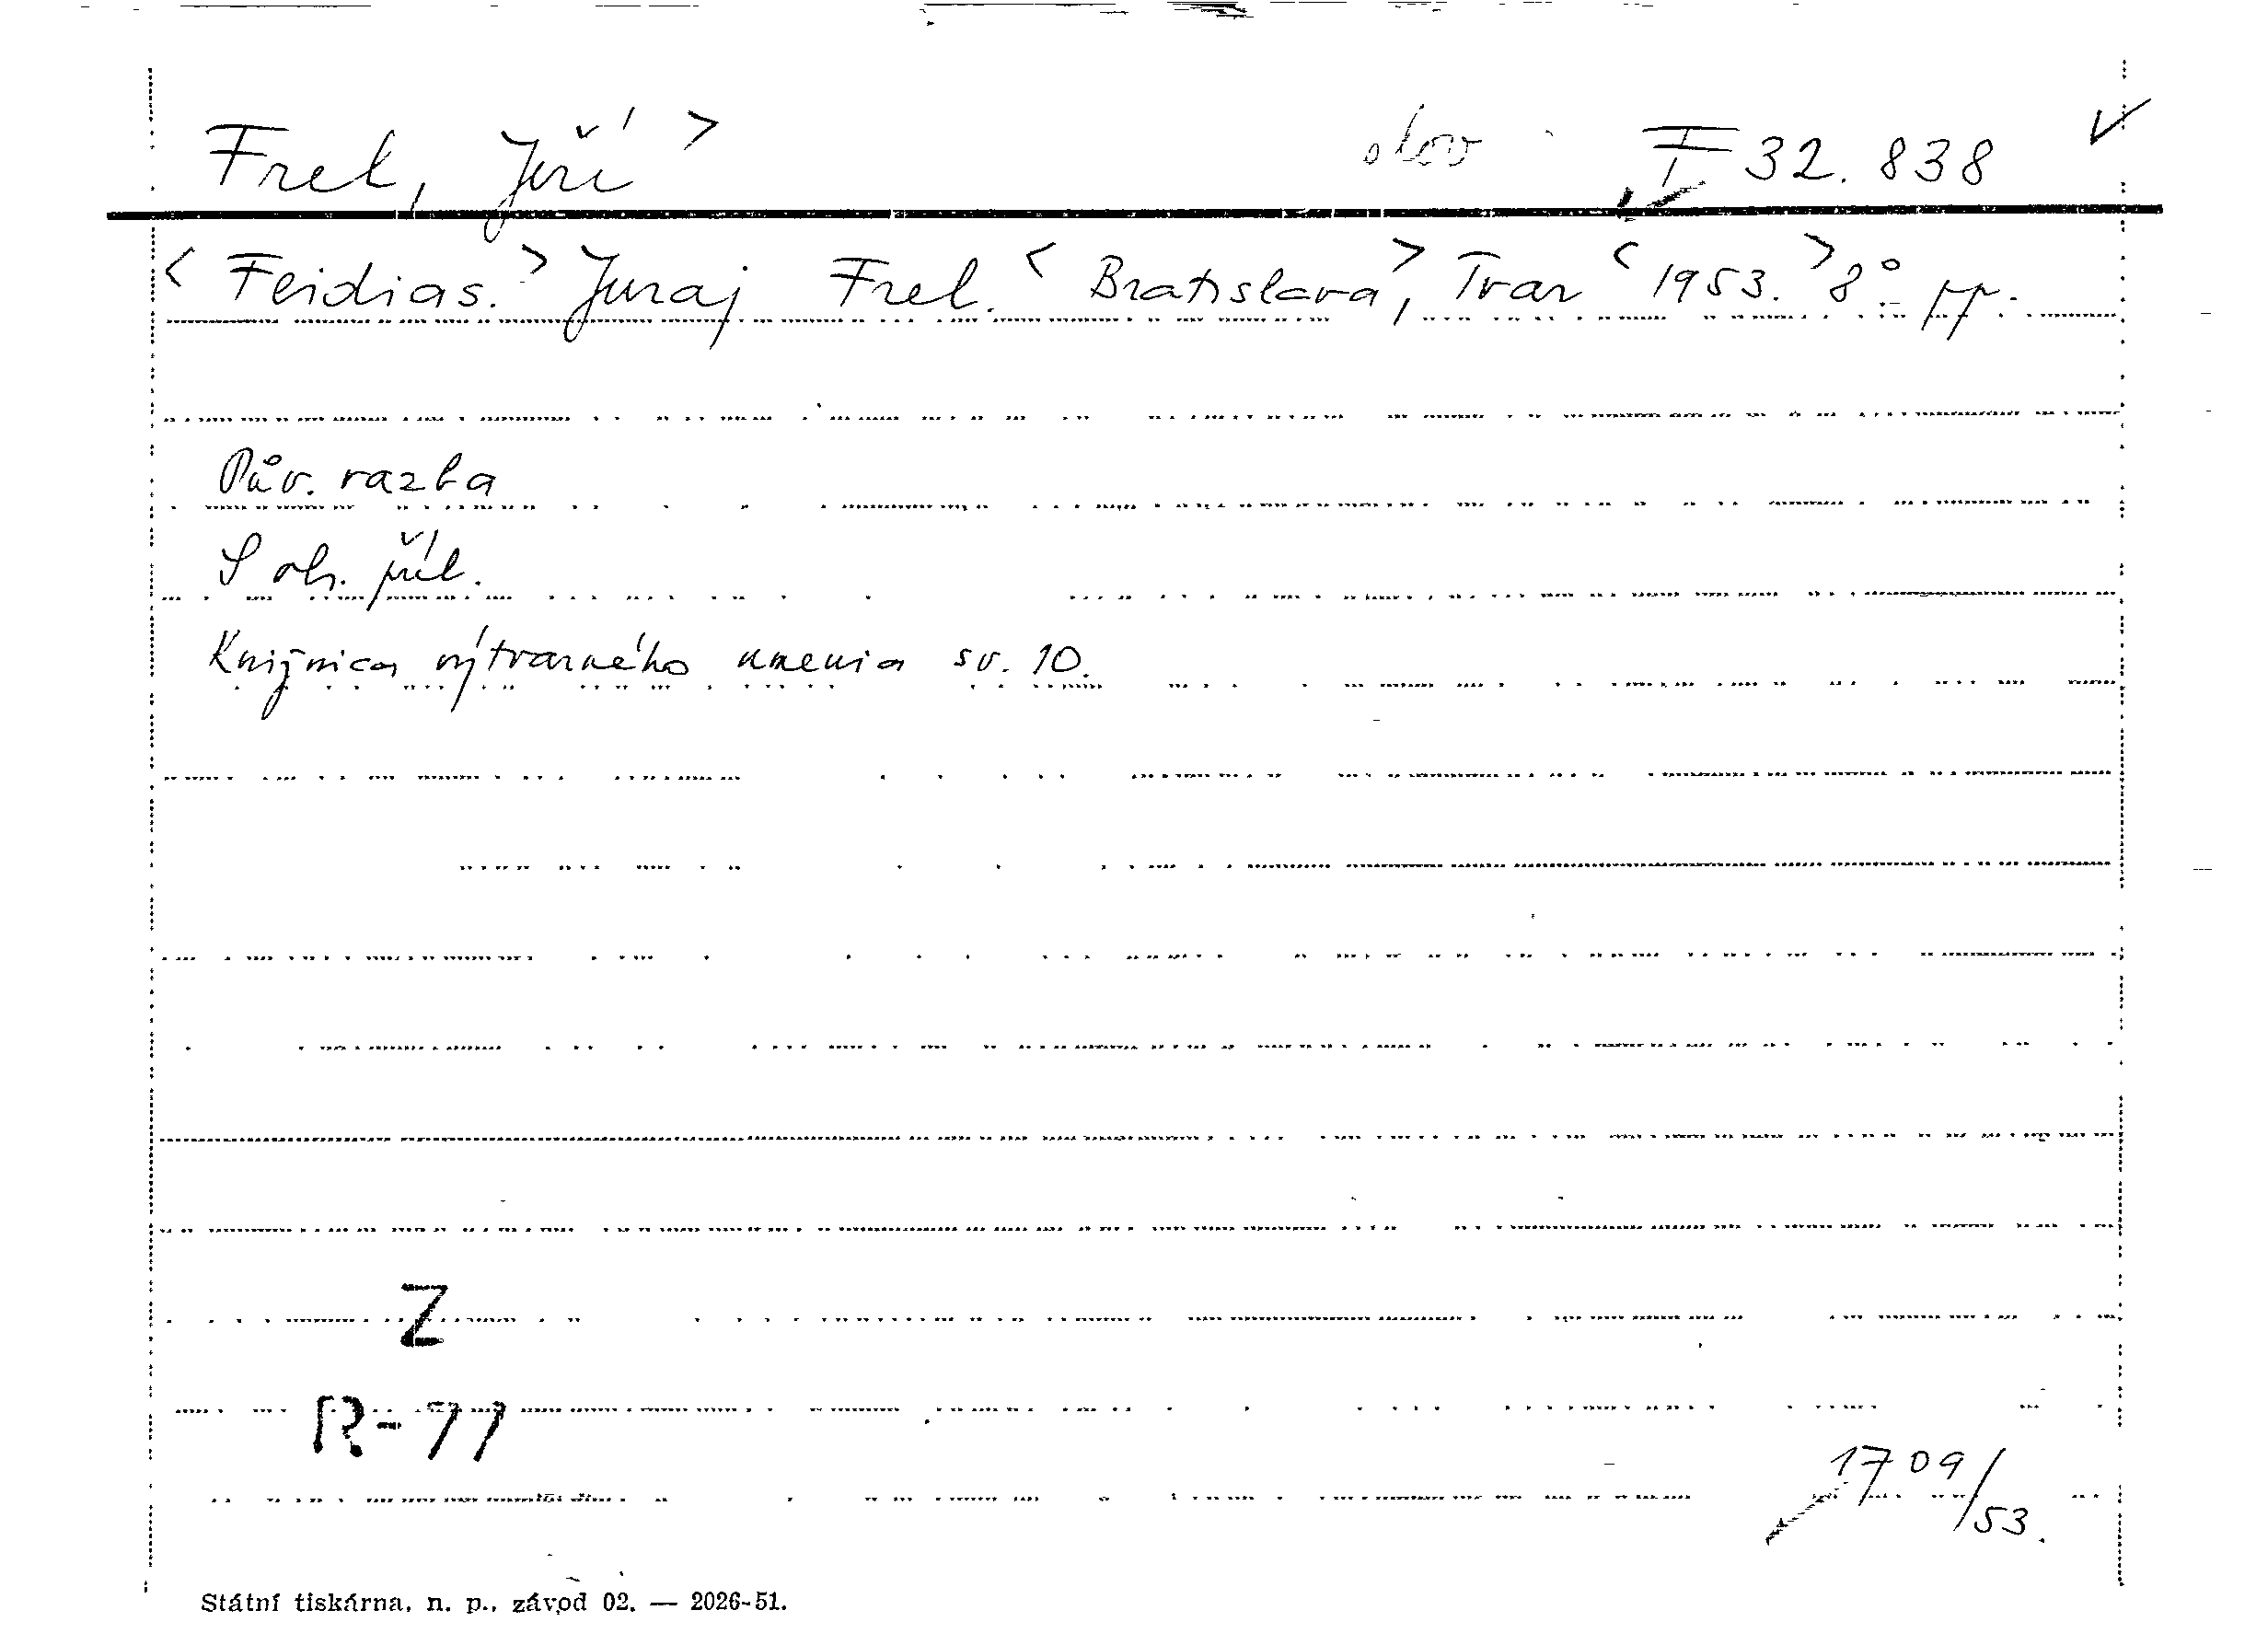 Frel, Jiří > I 32.838
< Feidias. > Juraj Frel. < Bratislava >, Tvar < 1953. > 8°.
Pův. razba
S obr. příl.
Knižnica výtvarného umenia sv. 10.
Z
R-77
1709/53.
Státní tiskárna, n. p., závod 02. — 2026-51.